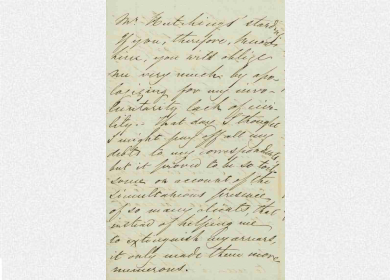 Mr. Hutchings'
If you, therefore,
here, you will oblige
me very much by apo-
logizing for my invo-
luntarily lack of civi-
lity. That day I thought
I might pay off all my
debts to my correspondents,
but it proved to be so
some on account of the
simultaneous presence
of so many that
instead of helping me
to extinguish my arrears,
it only made them more
numerous.